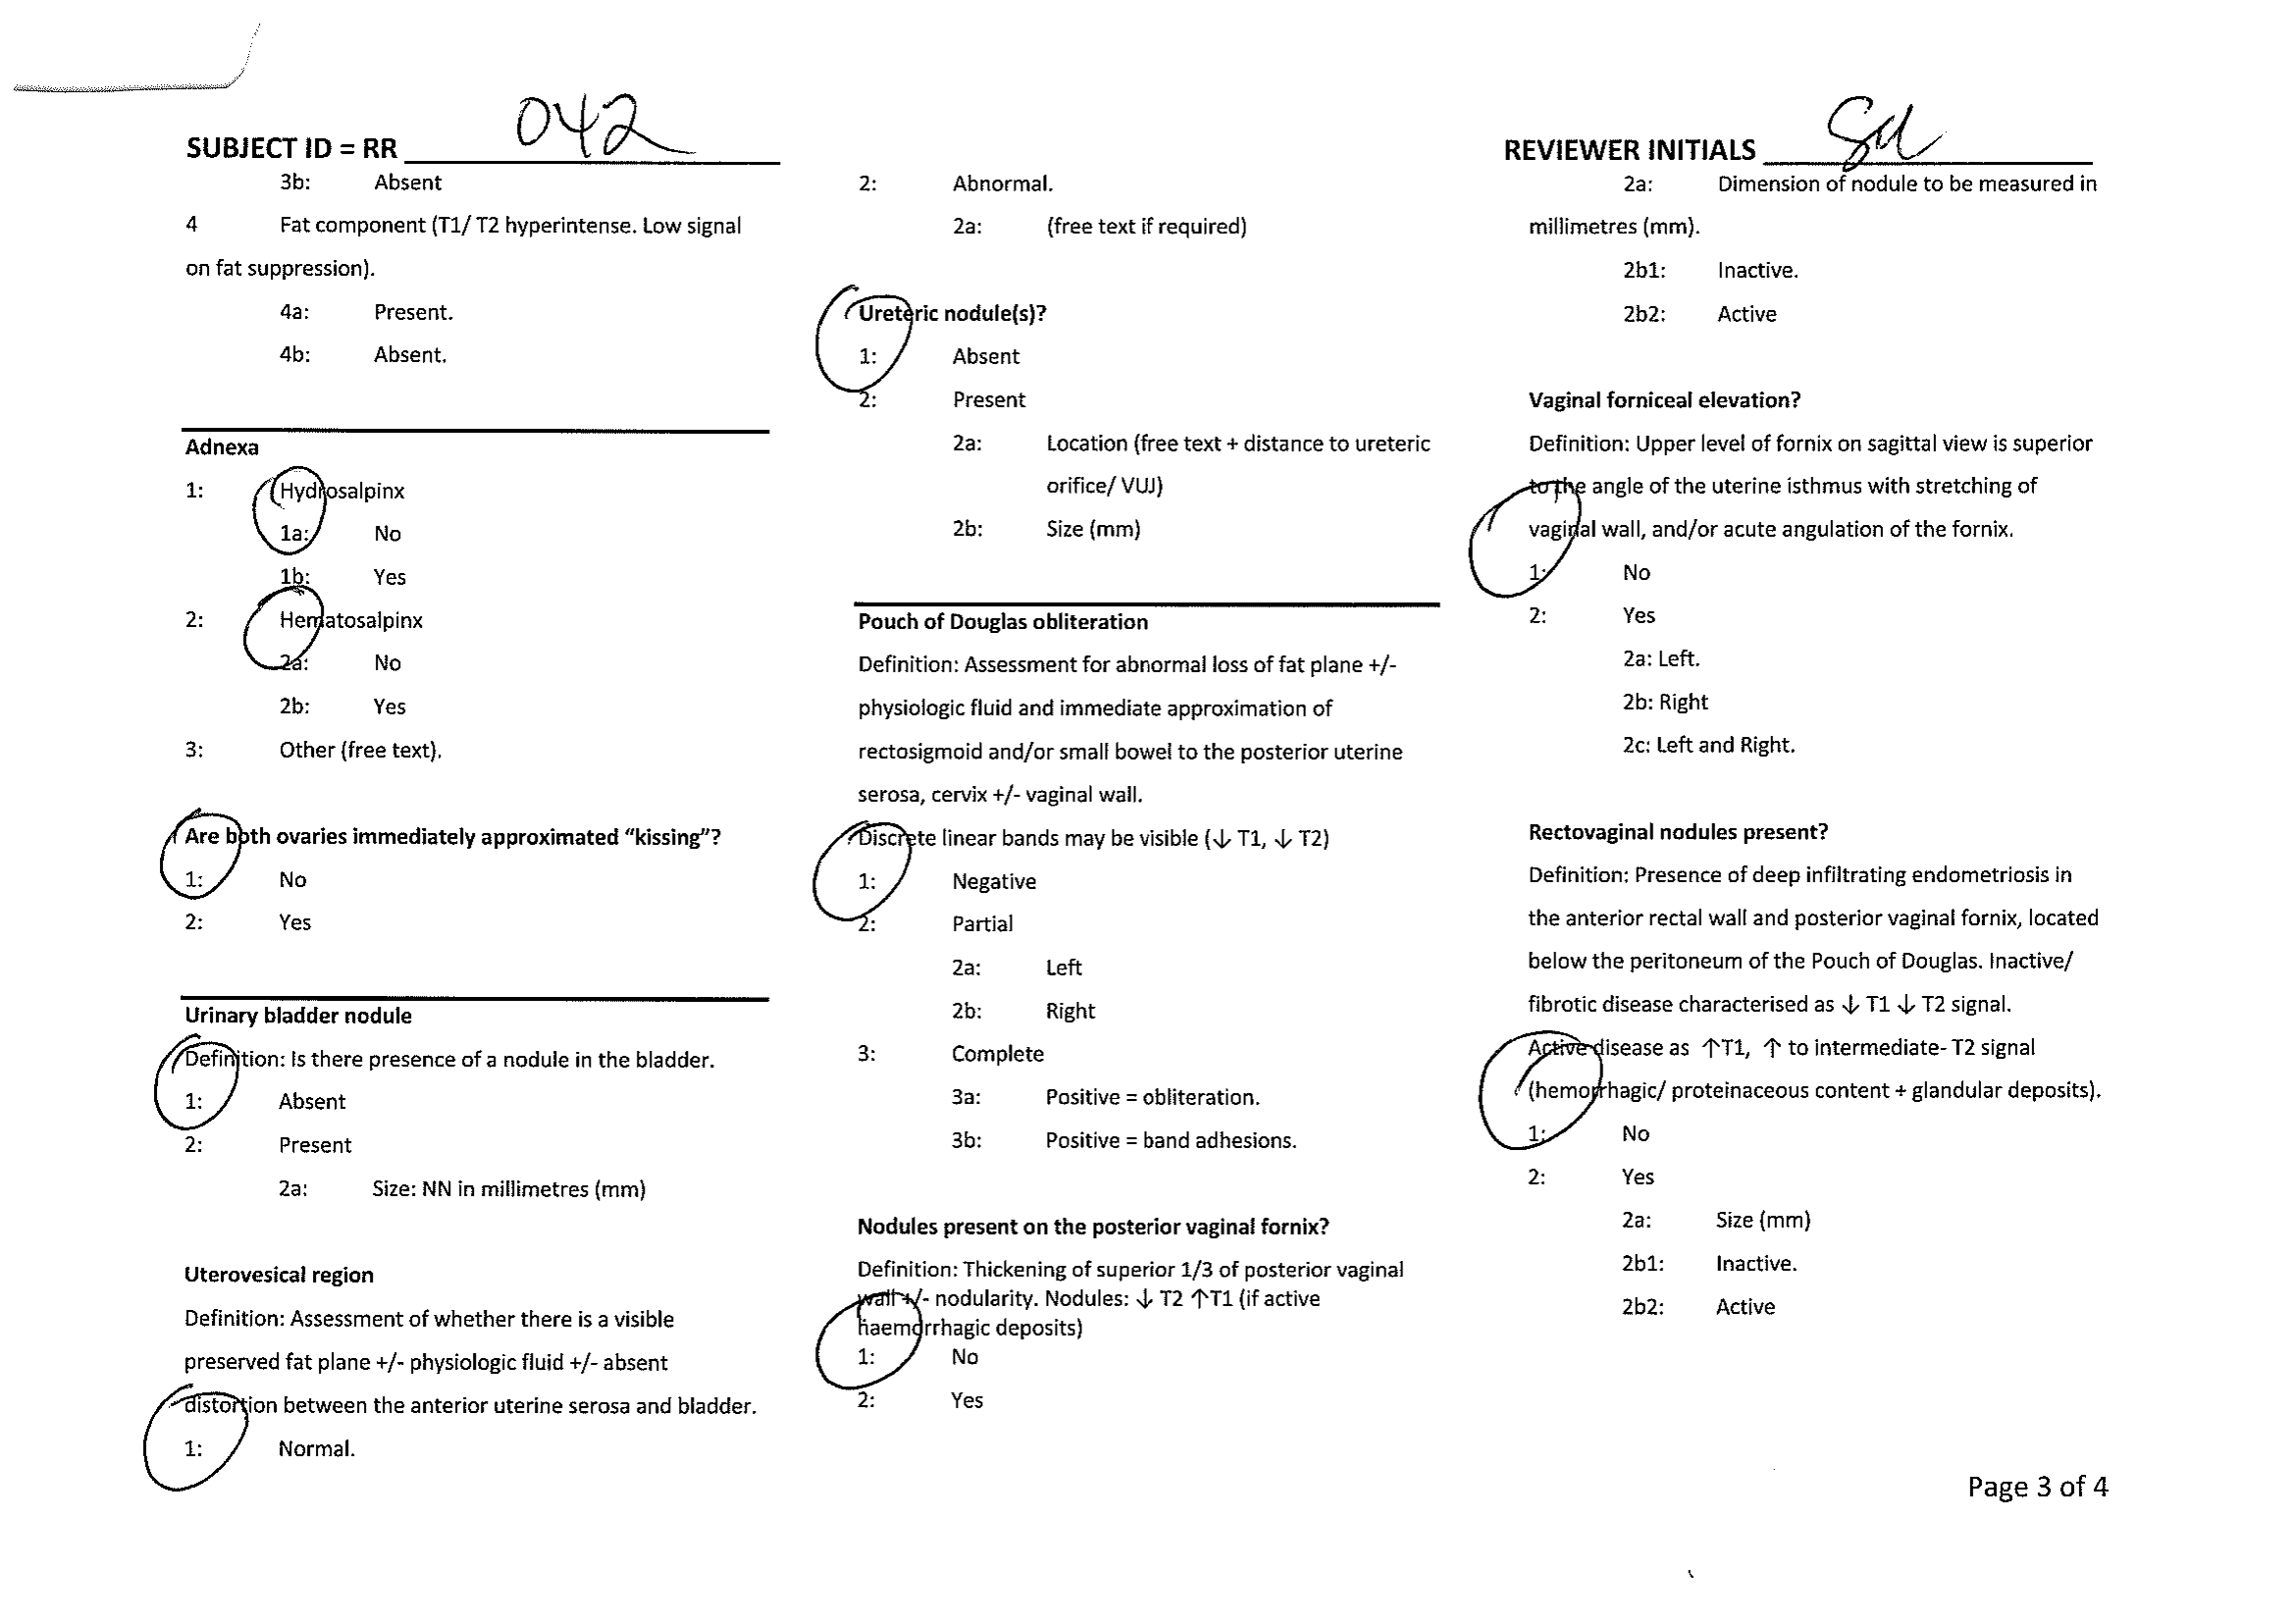 SUBJECT ID = RR 042
3b: Absent
4 Fat component (T1/ T2 hyperintense. Low signal
on fat suppression).
4a: Present.
4b: Absent.
Adnexa
1: Hydrosalpinx
1a: No
1b: Yes
2: Hematosalpinx
2a: No
2b: Yes
3: Other (free text).
Are both ovaries immediately approximated “kissing”?
1: No
2: Yes
Urinary bladder nodule
Definition: Is there presence of a nodule in the bladder.
1: Absent
2: Present
2a: Size: NN in millimetres (mm)
Uterovesical region
Definition: Assessment of whether there is a visible
preserved fat plane +/- physiologic fluid +/- absent
distortion between the anterior uterine serosa and bladder.
1: Normal.
2: Abnormal.
2a: (free text if required)
Ureteric nodule(s)?
1: Absent
2: Present
2a: Location (free text + distance to ureteric
orifice/ VUJ)
2b: Size (mm)
Pouch of Douglas obliteration
Definition: Assessment for abnormal loss of fat plane +/-
physiologic fluid and immediate approximation of
rectosigmoid and/or small bowel to the posterior uterine
serosa, cervix +/- vaginal wall.
Discrete linear bands may be visible (↓ T1, ↓ T2)
1: Negative
2: Partial
2a: Left
2b: Right
3: Complete
3a: Positive = obliteration.
3b: Positive = band adhesions.
Nodules present on the posterior vaginal fornix?
Definition: Thickening of superior 1/3 of posterior vaginal
wall +/- nodularity. Nodules: ↓ T2 ↑T1 (if active
haemorrhagic deposits)
1: No
2: Yes
REVIEWER INITIALS
2a: Dimension of nodule to be measured in
millimetres (mm).
2b1: Inactive.
2b2: Active
Vaginal forniceal elevation?
Definition: Upper level of fornix on sagittal view is superior
to the angle of the uterine isthmus with stretching of
vaginal wall, and/or acute angulation of the fornix.
1: No
2: Yes
2a: Left.
2b: Right
2c: Left and Right.
Rectovaginal nodules present?
Definition: Presence of deep infiltrating endometriosis in
the anterior rectal wall and posterior vaginal fornix, located
below the peritoneum of the Pouch of Douglas. Inactive/
fibrotic disease characterised as ↓ T1 ↓ T2 signal.
Active disease as ↑T1, ↑ to intermediate- T2 signal
(hemorrhagic/ proteinaceous content + glandular deposits).
1: No
2: Yes
2a: Size (mm)
2b1: Inactive.
2b2: Active
Page 3 of 4